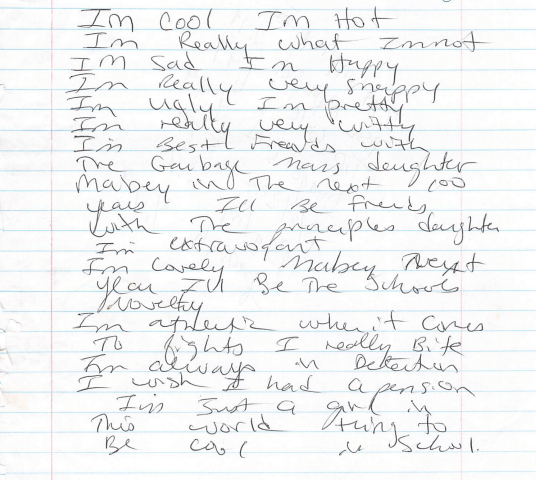 Im Cool Im Hot
Im Really what Imnot
Im Sad Im Happy
Im Really very snappy
Im ugly I'm pretty
Im really very witty
I'm Best Freinds with
The Garbage Mans daughter
Mabey in The next 100
years I'll Be Freinds
with The principles daughter
Im extravagant
I'm Lovely Mabey Next
year I'll Be The Schools
Novelty
I'm athletic when it Comes
To fights I really Bite
I'm always in Detention
I wish I had a pension
I'm Just a girl in
This world trying to
Be cool in School.